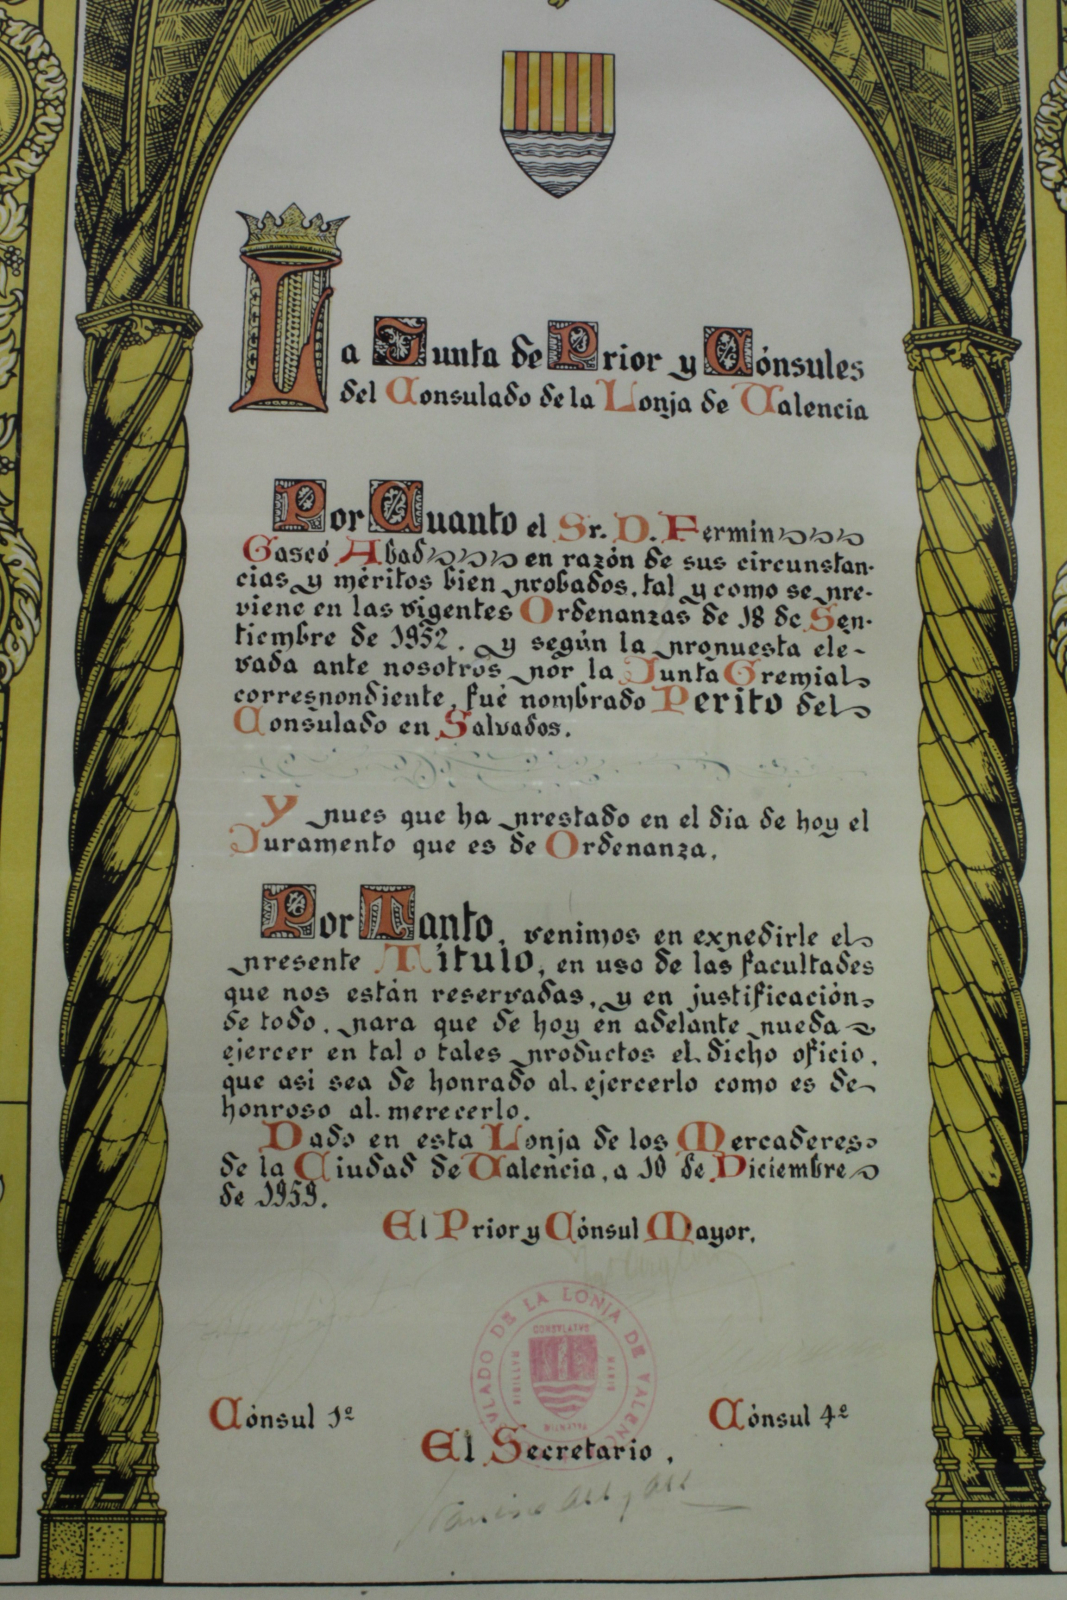 La Junta de Prior y Cónsules
del Consulado de la Lonja de Valencia
Por Cuanto el Sr. D. Fermin
Gascó Abad en razón de sus circunstan-
cias y méritos bien probados, tal y como se pre-
viene en las vigentes Ordenanzas de 18 de Sep-
tiembre de 1952. y según la propuesta ele-
vada ante nosotros por la Junta Gremial
correspondiente, fué nombrado Perito del
Consulado en Salvados.
Y pues que ha prestado en el dia de hoy el
Juramento que es de Ordenanza,
Por Tanto, venimos en expedirle el
presente Título, en uso de las facultades
que nos están reservadas, y en justificación
de todo, para que de hoy en adelante pueda
ejercer en tal o tales productos el dicho oficio,
que asi sea de honrado al ejercerlo como es de
honroso al merecerlo.
Dado en esta Lonja de los Mercaderes
de la Ciudad de Valencia, a 10 de Diciembre
de 1959.
El Prior y Cónsul Mayor,
CONSULADO DE LA LONJA DE VALENCIA
SIGILLVM CONSVLATVS MARIS VALENTIE
Cónsul 1º
Cónsul 4º
El Secretario,